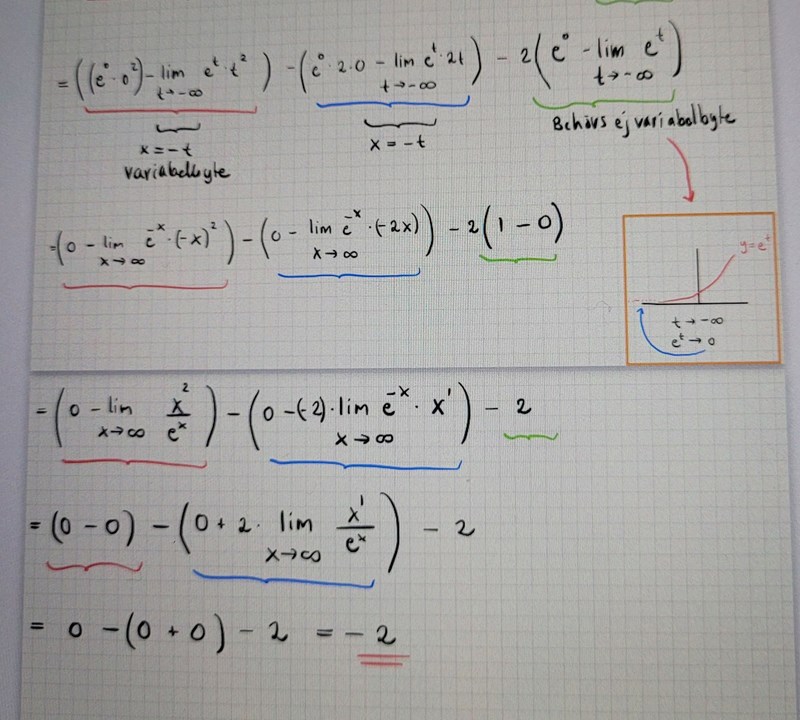 = ((e⁰·0²) - lim t→-∞ eᵗ·t²) - (e⁰·2·0 - lim t→-∞ eᵗ·2t) - 2(e⁰ - lim t→-∞ eᵗ)
x = -t
variabelbyte
x = -t
Behövs ej variabelbyte
= (0 - lim x→∞ e⁻ˣ·(-x)²) - (0 - lim x→∞ e⁻ˣ·(-2x)) - 2(1 - 0)
y = eᵗ
t → -∞
eᵗ → 0
= (0 - lim x→∞ x²/eˣ) - (0 - (-2)·lim x→∞ e⁻ˣ · x¹) - 2
= (0 - 0) - (0 + 2 · lim x→∞ x¹/eˣ) - 2
= 0 - (0 + 0) - 2 = -2